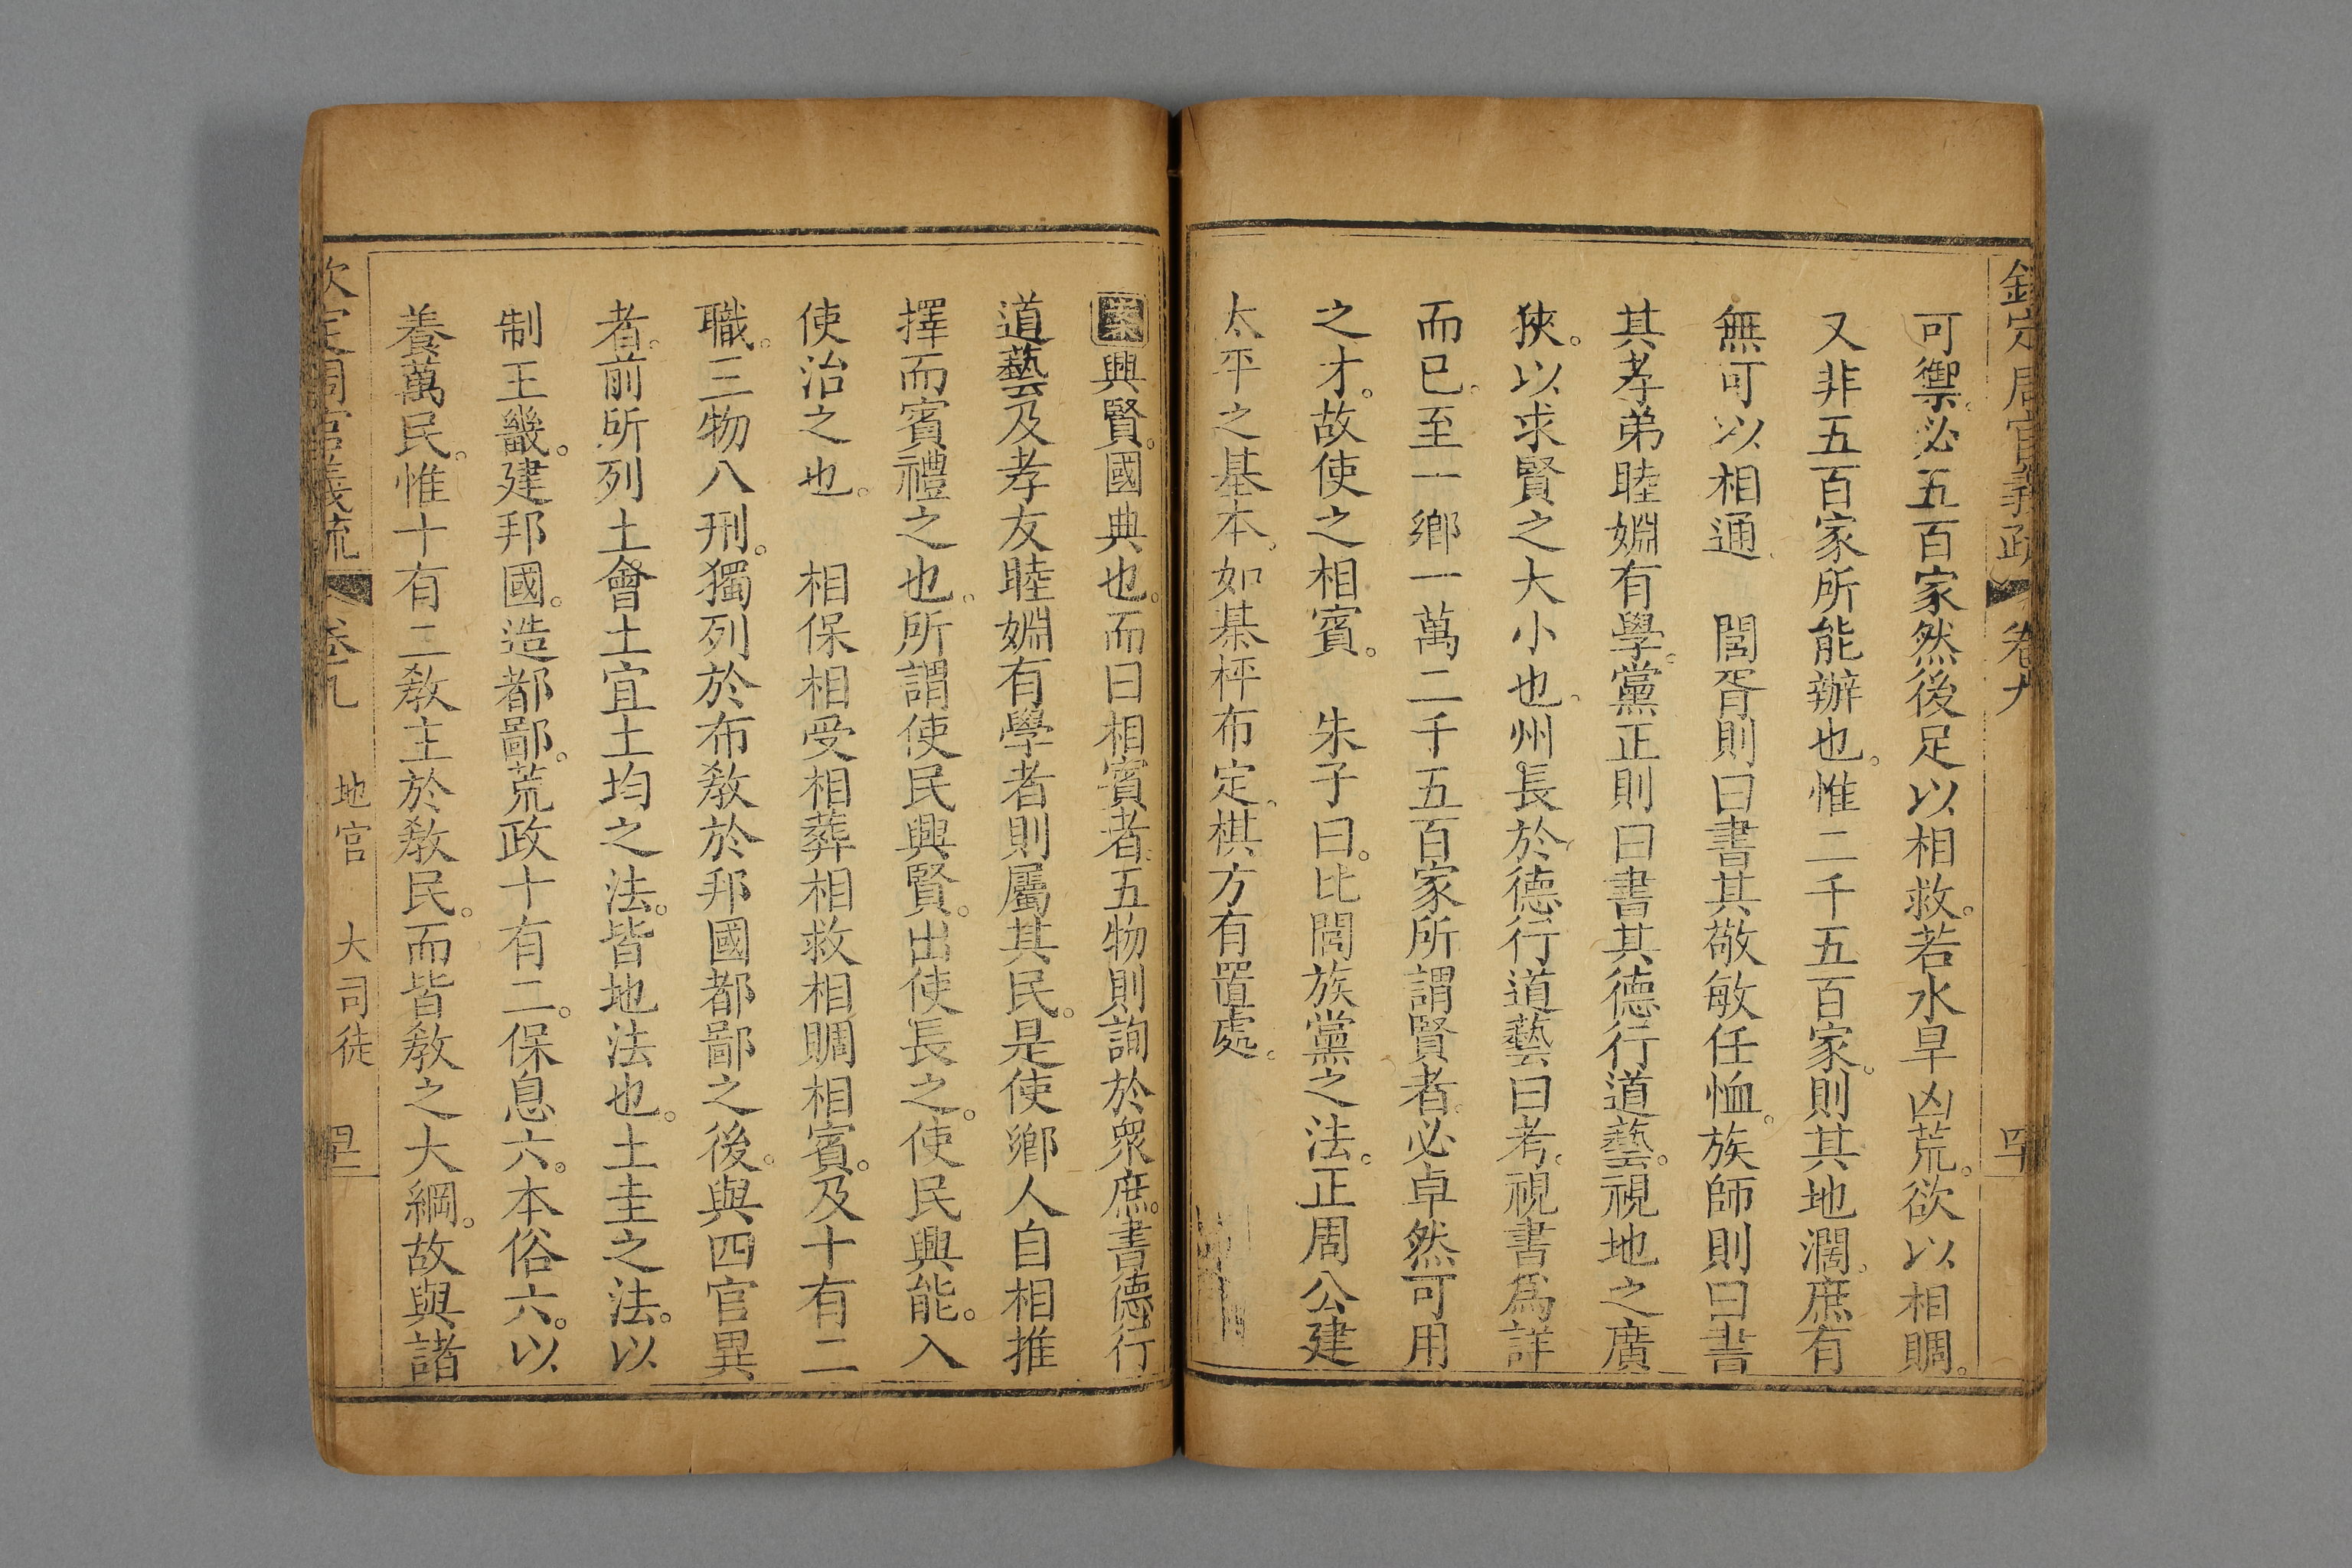 欽定周官義疏 卷九 四十
可禦。必五百家然後足以相救。若水旱凶荒。欲以相賙。
又非五百家所能辦也。惟二千五百家。則其地濶。庶有
無可以相通 閭胥則曰書其敬敏任恤。族師則曰書
其孝弟睦婣有學。黨正則曰書其德行道藝。視地之廣
狹。以求賢之大小也。州長於德行道藝曰考。視書爲詳
而已。至一鄉一萬二千五百家所謂賢者。必卓然可用
之才。故使之相賓。 朱子曰。比閭族黨之法。正周公建
太平之基本。如棊枰布定。棋方有置處。
案興賢。國典也。而曰相賓者。五物則詢於衆庶。書德行
道藝及孝友睦婣有學者則屬其民。是使鄉人自相推
擇而賓禮之也。所謂使民興賢。出使長之。使民興能。入
使治之也。 相保相受相葬相救相賙相賓。及十有二
職。三物八刑。獨列於布敎於邦國都鄙之後。與四官異
者。前所列土會土宜土均之法。皆地法也。土圭之法。以
制王畿。建邦國。造都鄙。荒政十有二。保息六。本俗六。以
養萬民。惟十有二敎主於敎民。而皆敎之大綱。故與諸
欽定周官義疏 卷九 地官 大司徒